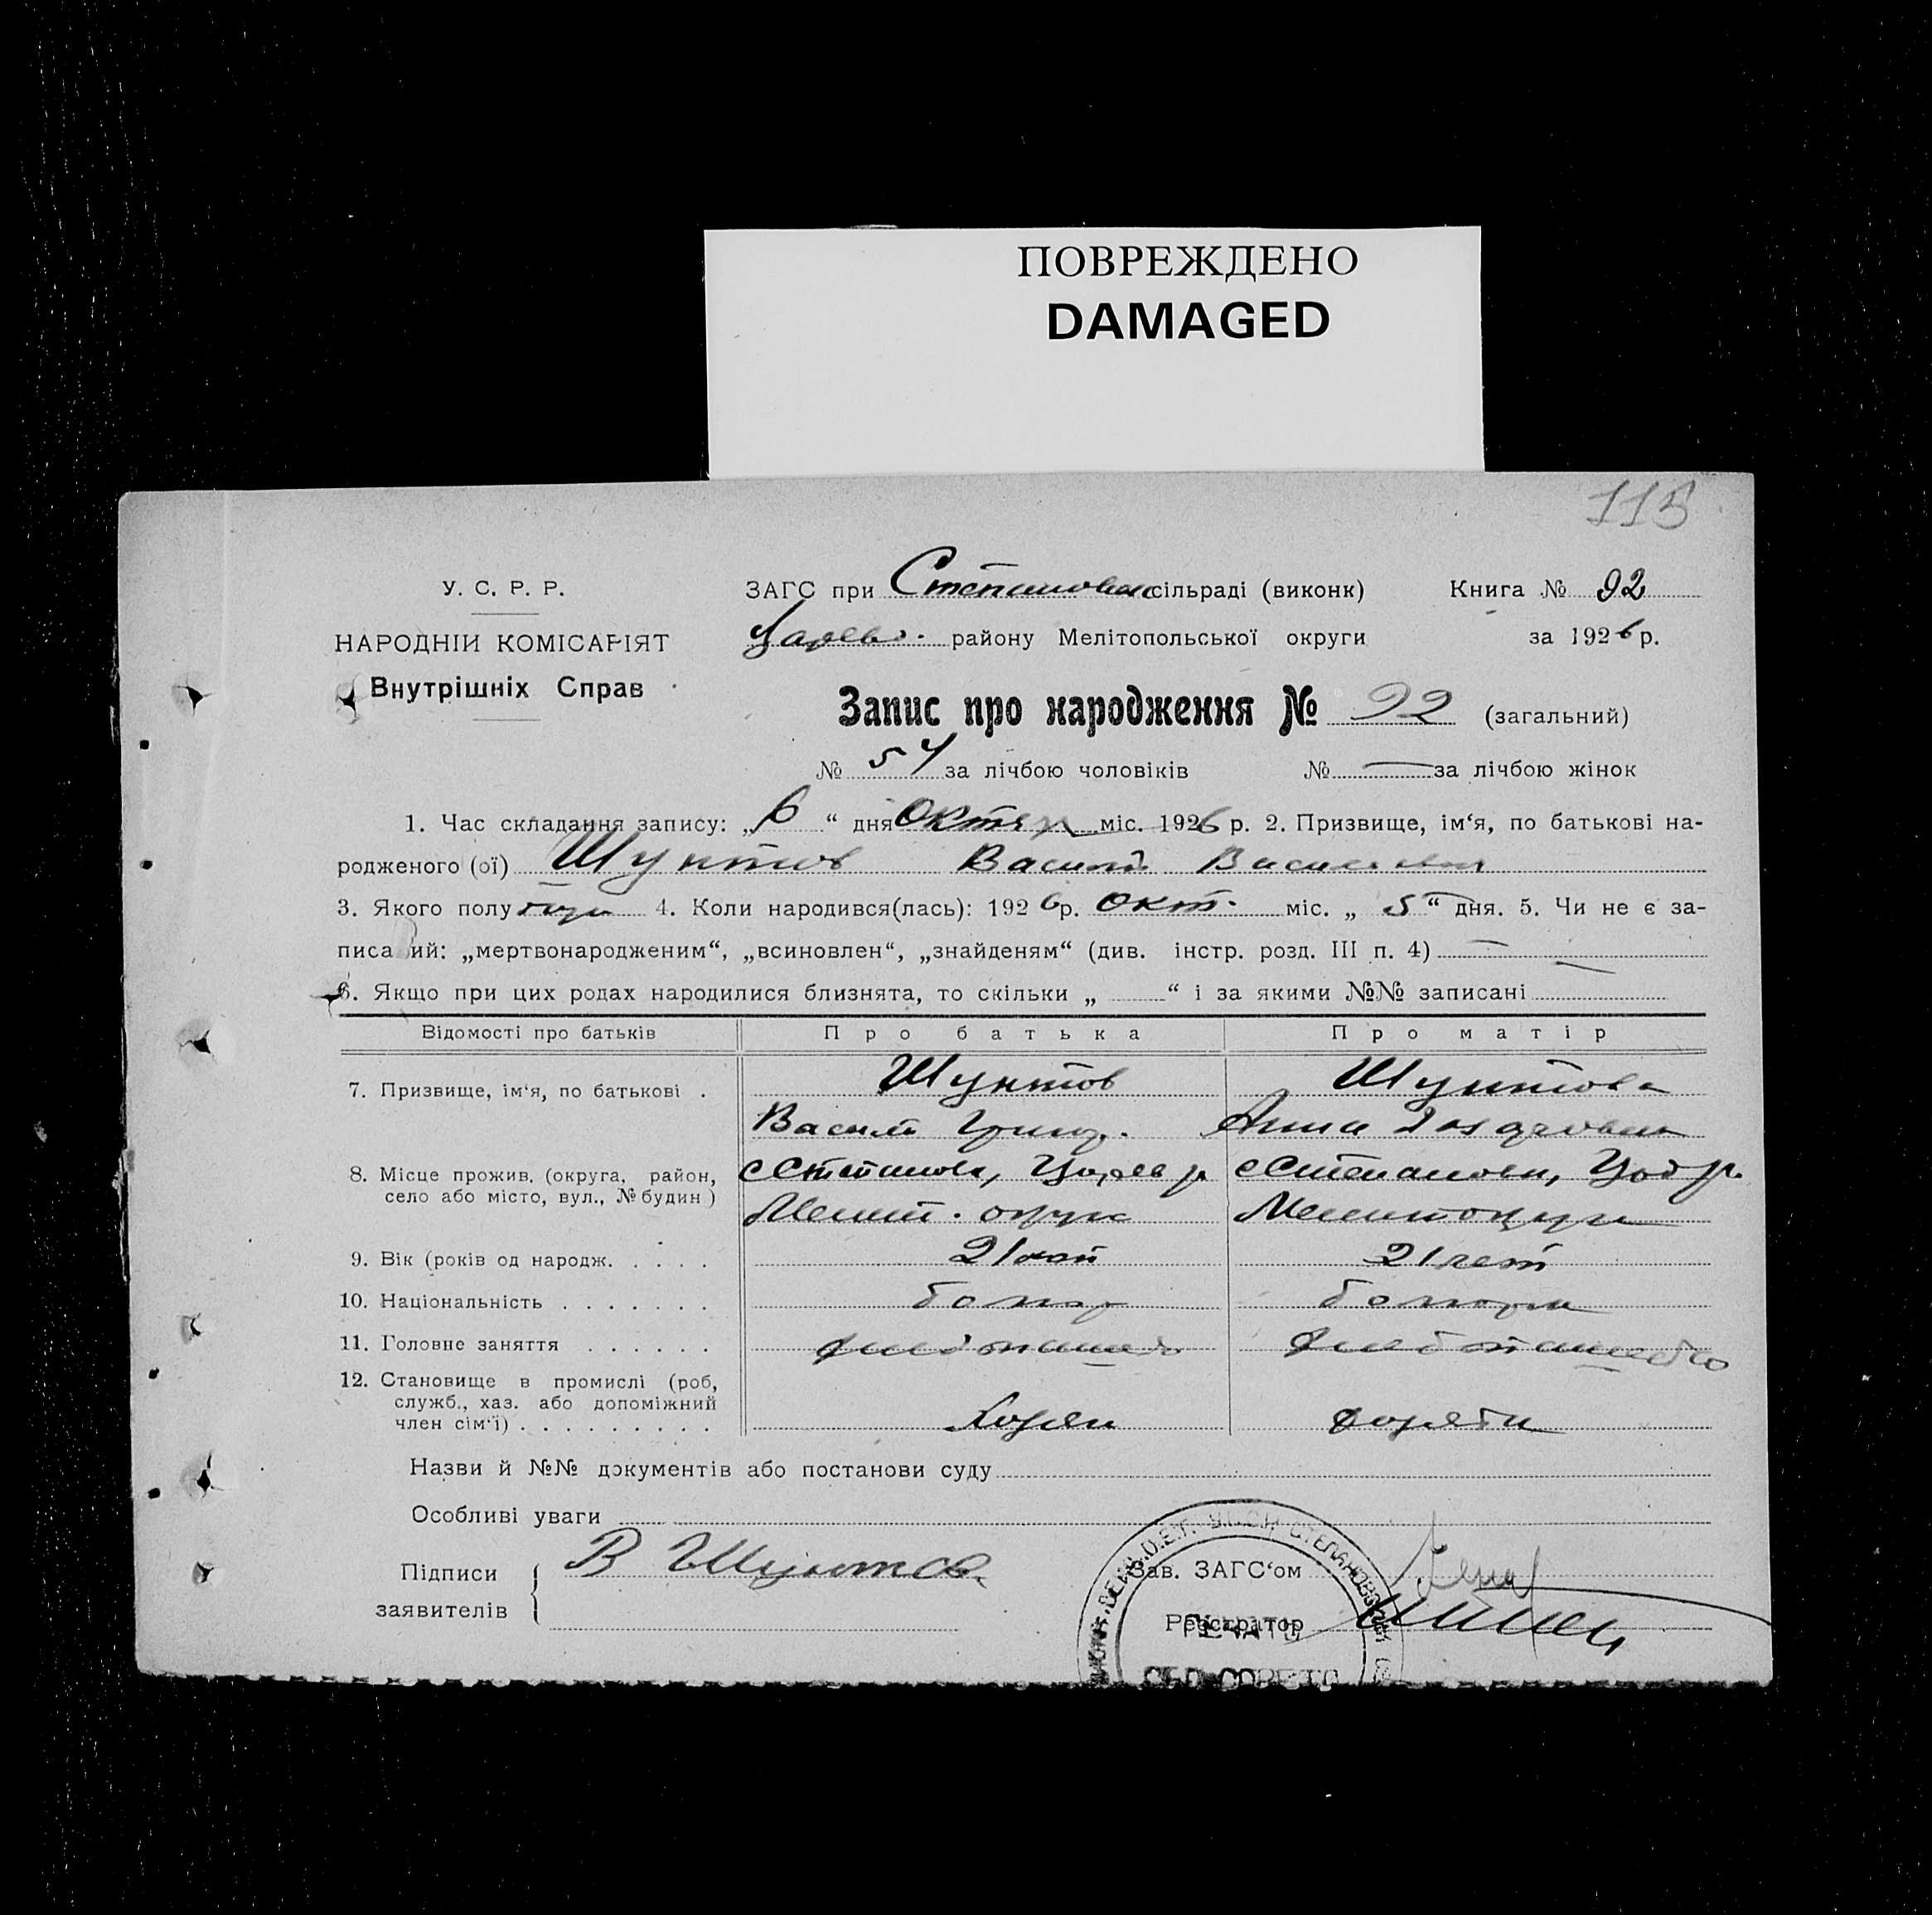 ПОВРЕЖДЕНО
DAMAGED
115
У. С. Р. Р.
НАРОДНІЙ КОМІСАРІЯТ
Внутрішніх Справ
ЗАГС при Степановск сільраді (виконк) Книга № 92
Царево. району Мелітопольської округи за 1926 р.
Запис про народження № 92 (загальний)
№ 54 за лічбою чоловіків № — за лічбою жінок
1. Час складання запису: „6“ дня Октяр міс. 1926 р. 2. Призвище, ім‘я, по батькові на-
родженого (ої) Шунтов Василий Васильевич
3. Якого полу 4. Коли народився(лась): 1926 р. окт. міс. „5“ дня. 5. Чи не є за-
писаний: „мертвонародженим“, „всиновлен“, „знайденям“ (див. інстр. розд. III п. 4) —
6. Якщо при цих родах народилися близнята, то скільки „ “ і за якими №№ записані
Відомості про батьків Про батька Про матір
7. Призвище, ім‘я, по батькові . Шунтов Шунтова
Васили Григор. Анна
8. Місце прожив. (округа, район, с Степановк, Царев р с Степановк,
село або місто, вул., № будин) Мелит. округ Мелитокруг
9. Вік (років од народж. . . . . 21 21 лет
10. Національність . . . . . . . болгар болгарка
11. Головне заняття . . . . . . хлебопашество хлебопашество
12. Становище в промислі (роб,
служб., хаз. або допоміжний
член сім‘ї) . . . . . . . . . Хозяин хозяйка
Назви й №№ документів або постанови суду
Особливі уваги
Підписи В Шунтов
заявителів
Зав. ЗАГС‘ом
Реєстратор
ПЕЧАТЬ
СЕЛ СОВЕТА